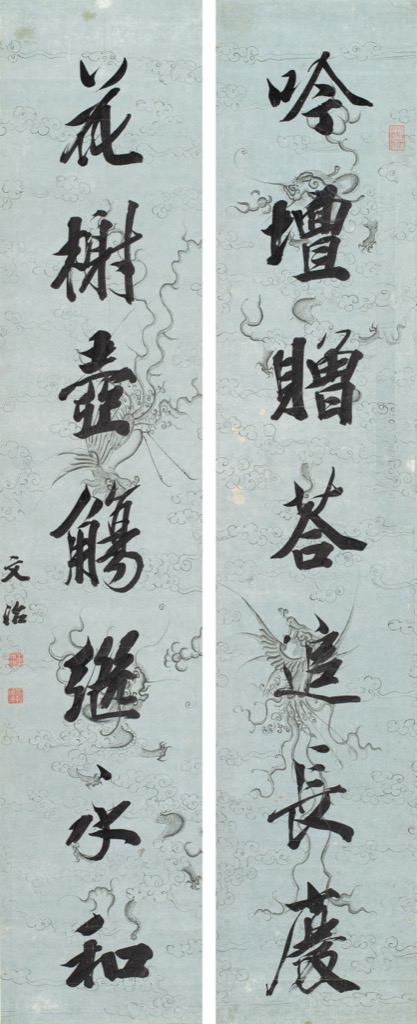 吟壇贈荅追長慶
花榭壺觴継永和
文治